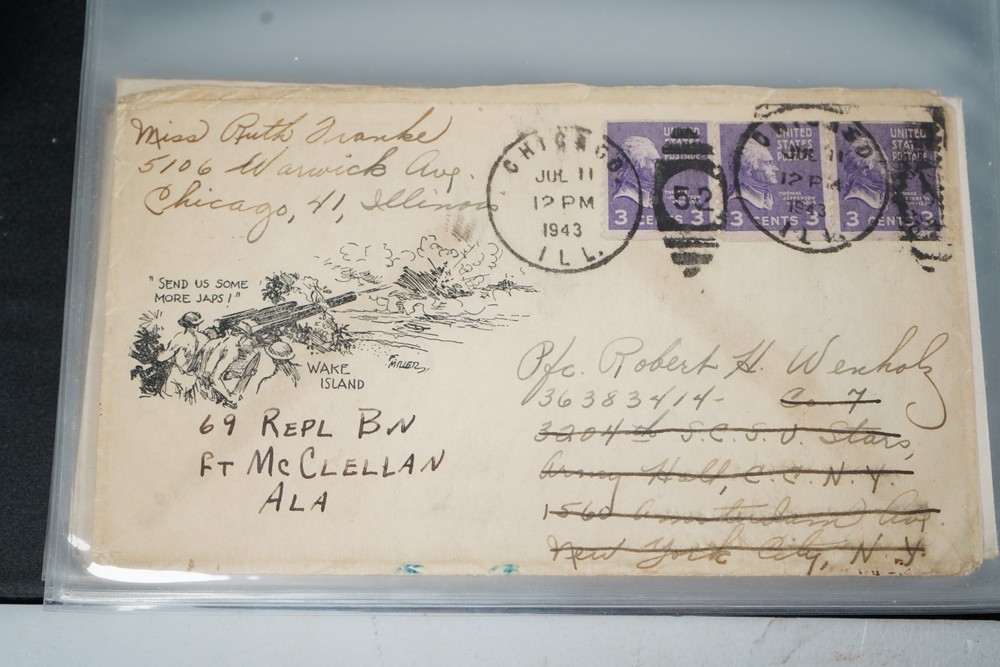 Miss Ruth Franke
5106 Warwick Ave.
Chicago, 41, Illinois
CHICAGO
JUL 11
12 PM
1943
ILL.
52
UNITED
STATES
POSTAGE
3 CENTS 3
UNITED
STATES
POSTAGE
THOMAS
JEFFERSON
3 CENTS 3
UNITED
STATES
POSTAGE
3 CENTS 3
CHICAGO
JUL 11
12 PM
1943
ILL.
"SEND US SOME
MORE JAPS!"
WAKE
ISLAND
Pfc. Robert H. Wenholz
36383414- Co 7
3204th S.C.S.U. Stars,
Army Hall, C.C.N.Y.
1560 Amsterdam Ave.
New York City, N.Y.
69 REPL BN
FT MCCLELLAN
ALA